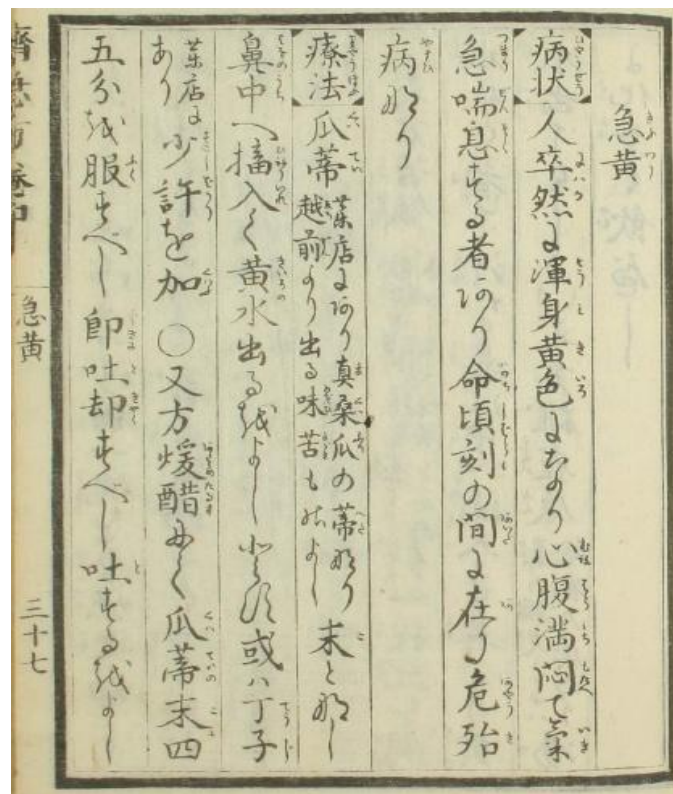 急黄
病状 人卒然に渾身黄色になり心腹満悶て気
急喘息する者あり命頃刻の間に在り危殆
病なり
療法 瓜蒂 薬店にあり真桑瓜の蒂なり 越前より出る味苦ものよし 末となし
鼻中へ搐入て黄水出るをよしとす或ハ丁子
薬店にあり 少許を加 ○又方煖醋にて瓜蒂末四
五分を服すべし即吐却すべし吐するをよし
急黄
三十七